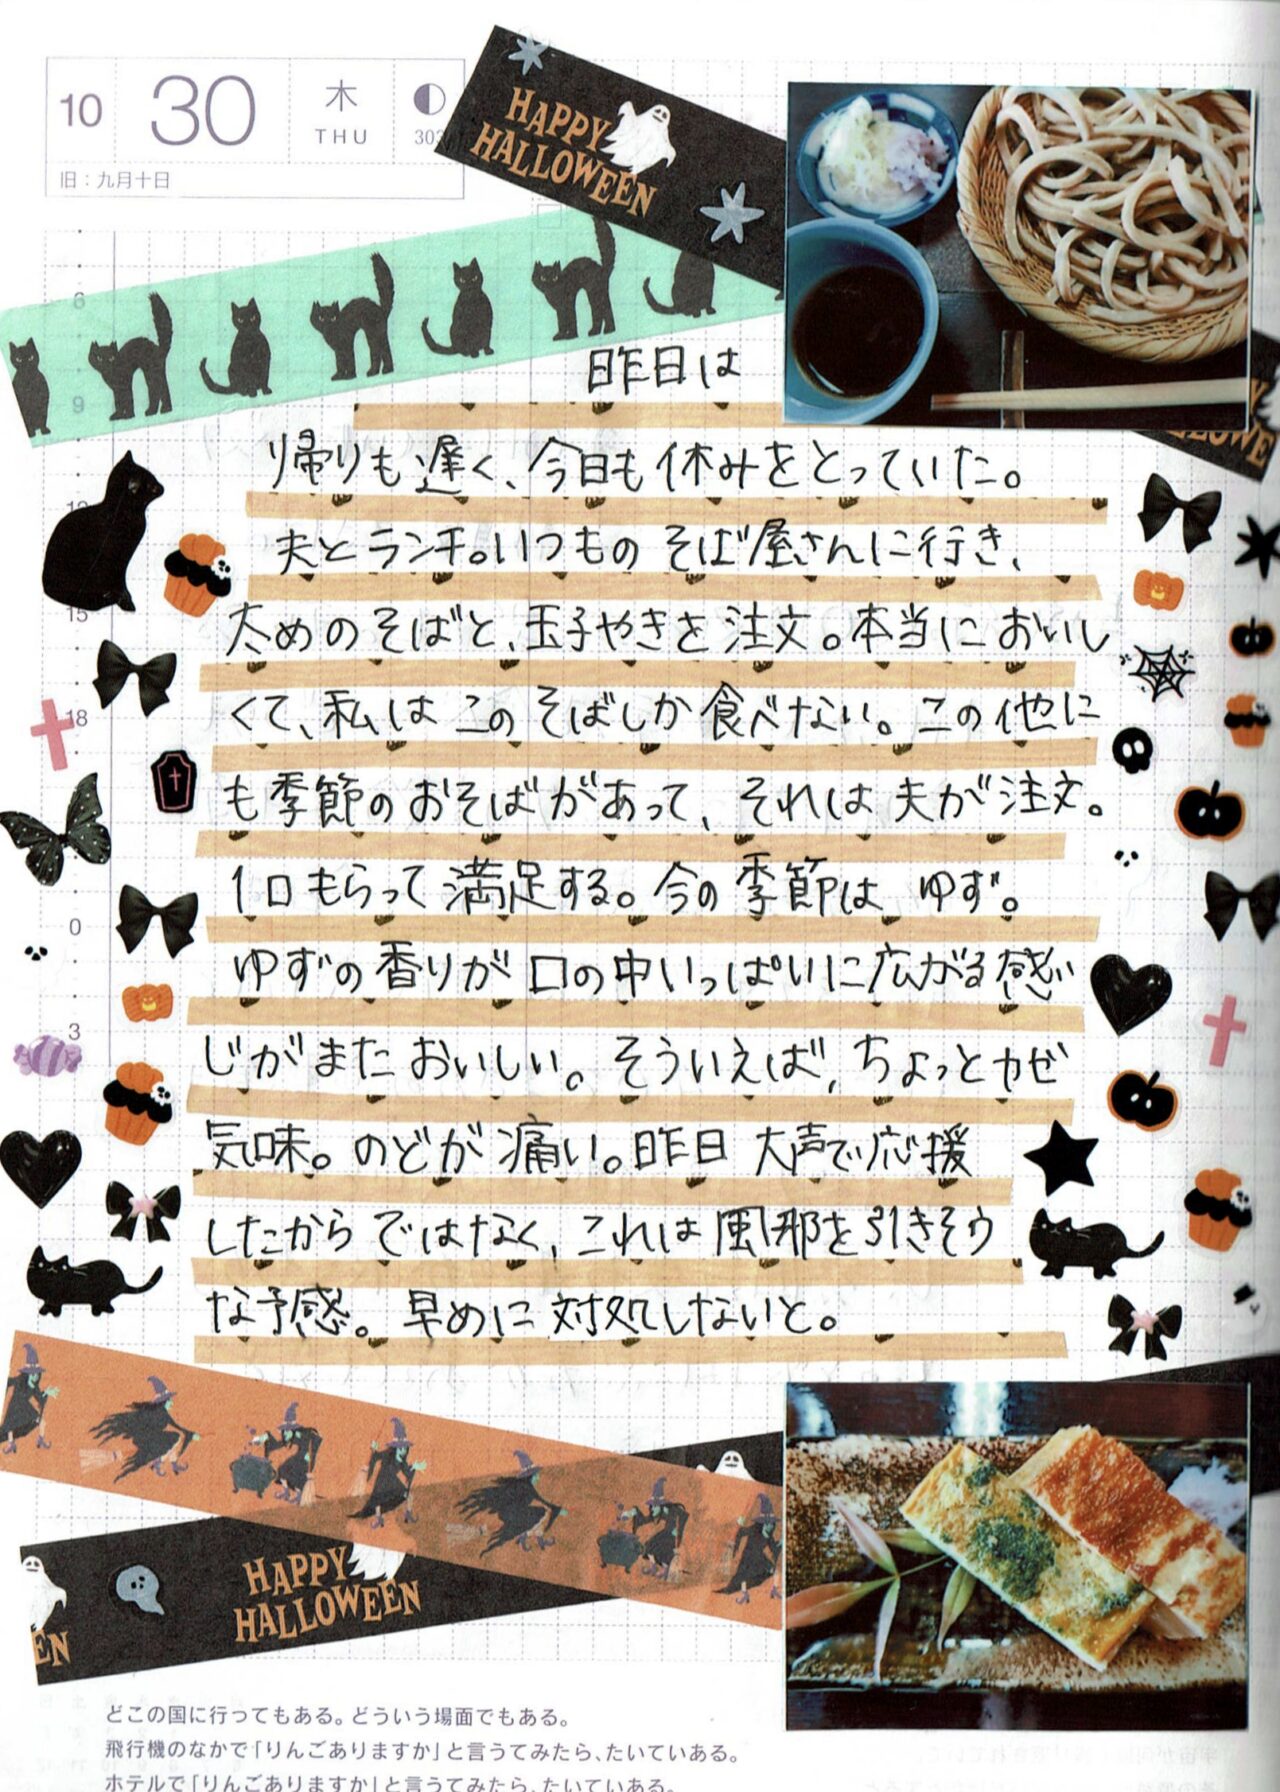 10
30
木
THU
旧:九月十日
HAPPY
HALLOWEEN
6
9
昨日は
帰りも遅く、今日も休みをとっていた。
夫とランチ。いつものそば屋さんに行き、
太めのそばと、玉子やきを注文。本当においし
くて、私はこのそばしか食べない。この他に
も季節のおそばがあって、それは夫が注文。
1口もらって満足する。今の季節は ゆず。
ゆずの香りが口の中いっぱいに広がる感い
じがまたおいしい。そういえば、ちょっとカゼ
気味。のどが痛い。昨日 大声で応援
したからではなく、これは風邪を引きそう
な予感。早めに対処しないと。
15
18
0
3
HAPPY
HALLOWEEN
EN
どこの国に行ってもある。どういう場面でもある。
飛行機のなかで「りんごありますか」と言うてみたら、たいていある。
ホテルで「りんごありますか」と言うてみたら、たいていある。